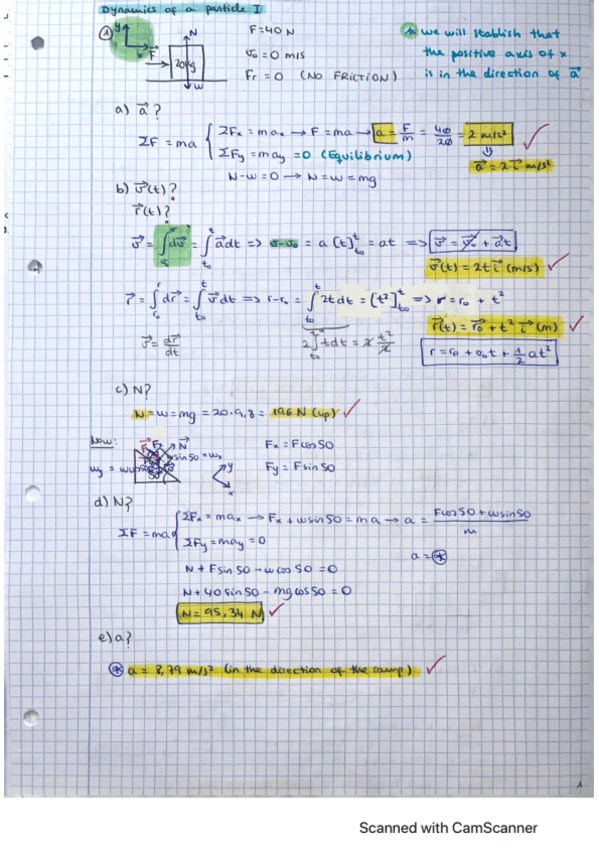 Dynamics of a particle I
① y x F N 20kg w
F = 40 N
v₀ = 0 m/s
Fr = 0 (NO FRICTION)
we will stablish that
the positive axis of x
is in the direction of a⃗
a) a⃗?
ΣF = ma { ΣFx = max → F = ma → a = F/m = 40/20 = 2 m/s²
ΣFy = may = 0 (Equilibrium)
⇓
a⃗ = 2 i⃗ m/s²
N-w = 0 → N = w = mg
b) v⃗(t)?
r⃗(t)?
v⃗ = ∫dv⃗ = ∫a⃗dt => v-v₀ = a [t] = at => v⃗ = v⃗₀ + a⃗t
v⃗(t) = 2t i⃗ (m/s)
r⃗ = ∫dr⃗ = ∫v⃗dt => r-r₀ = ∫2t dt = [t²] => r = r₀ + t²
r⃗(t) = r⃗₀ + t² i⃗ (m)
v⃗ = dr⃗/dt
2∫t dt = 2 t²/2
r = r₀ + v₀t + 1/2 at²
c) N?
N = w = mg = 20·9,8 = 196 N (up)
Now:
Fx = F cos50
Fy = F sin50
y
x
d) N?
ΣF = ma { ΣFx = max → Fx + w sin50 = ma → a = (F cos50 + w sin50)/m
ΣFy = may = 0
a = ⊛
N + F sin50 - w cos50 = 0
N + 40 sin50 - mg cos50 = 0
N = 95,34 N
e) a?
⊛ a = 8,79 m/s² (in the direction of the ramp)
1
Scanned with CamScanner